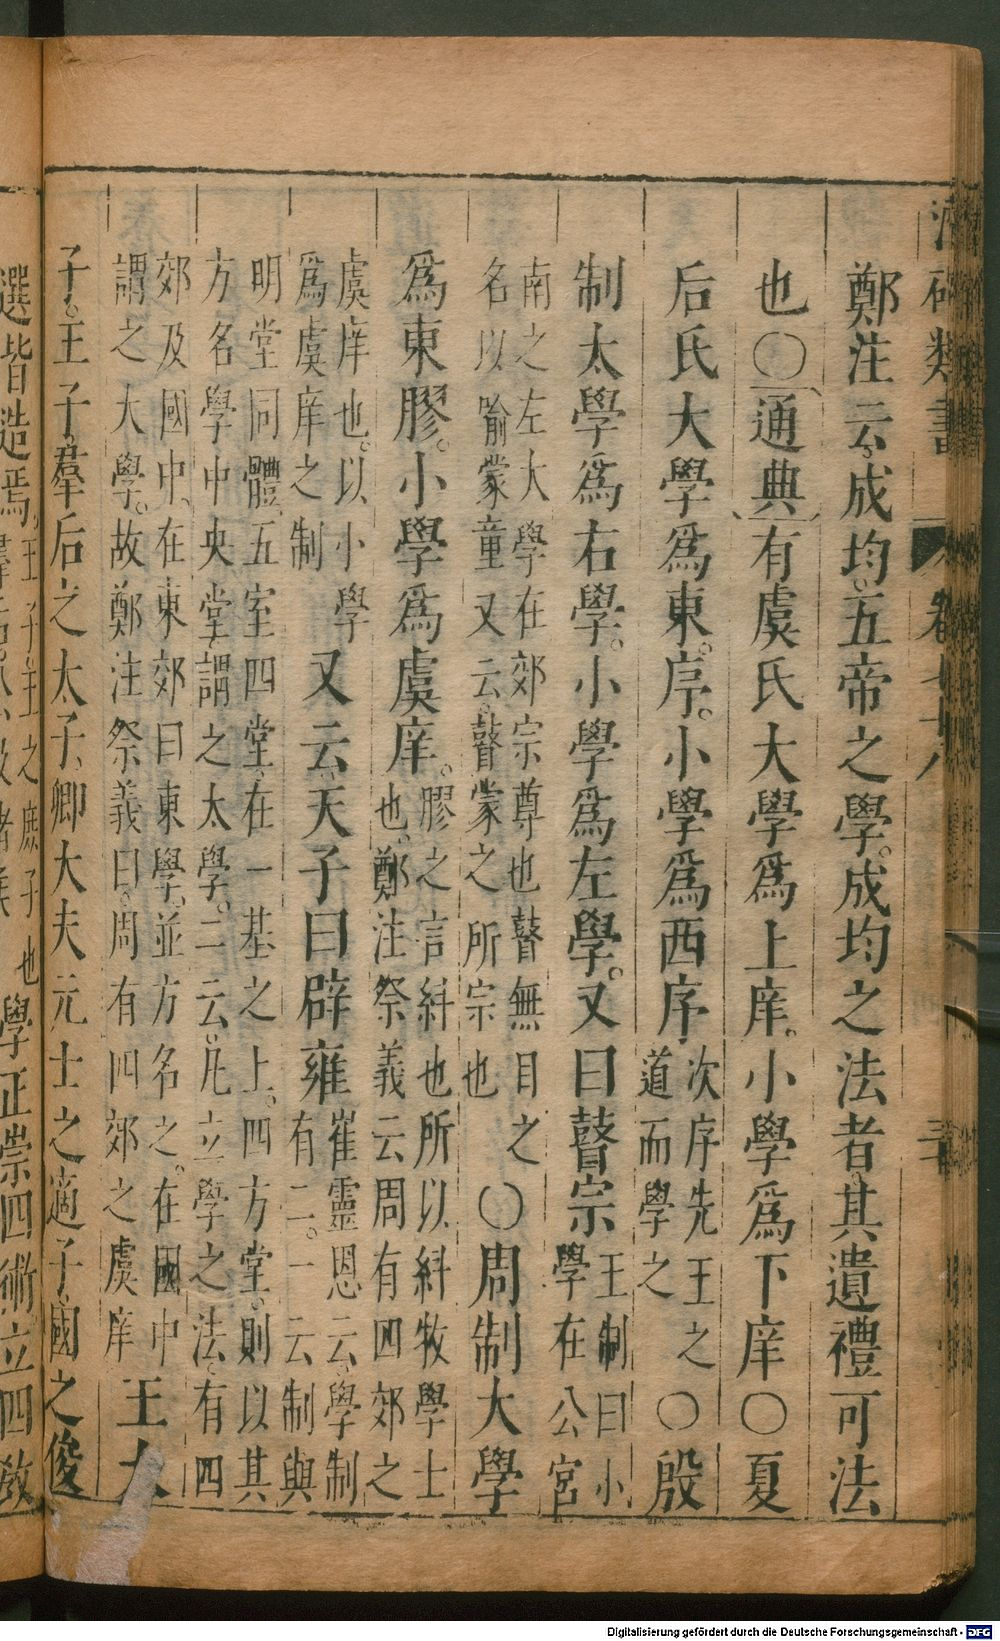 鄭注云成均五帝之學成均之法者其遺禮可法
也○通典有虞氏大學爲上庠小學爲下庠○夏
后氏大學爲東序小學爲西序次序先王之道而學之○殷
制太學爲右學小學爲左學又曰瞽宗王制曰小學在公宮
南之左大學在郊宗尊也瞽無目之名以喻蒙童又云瞽蒙之所宗也○周制大學
爲東膠小學爲虞庠膠之言糾也所以糾牧學士也鄭注祭義云周有四郊之
虞庠也以小學爲虞庠之制又云天子曰辟雍崔靈恩云學制有二一云制與
明堂同體五室四堂在一基之上四方堂則以其方名學中央堂謂之太學二云凡立學之法有四
郊及國中在東郊曰東學並方名之在國中謂之大學故鄭注祭義曰周有四郊之虞庠王
子王子羣后之太子卿大夫元士之適子國之俊
選皆造焉王子王之庶子也學正崇四術立四教
Digitalisierung gefördert durch die Deutsche Forschungsgemeinschaft - DFG